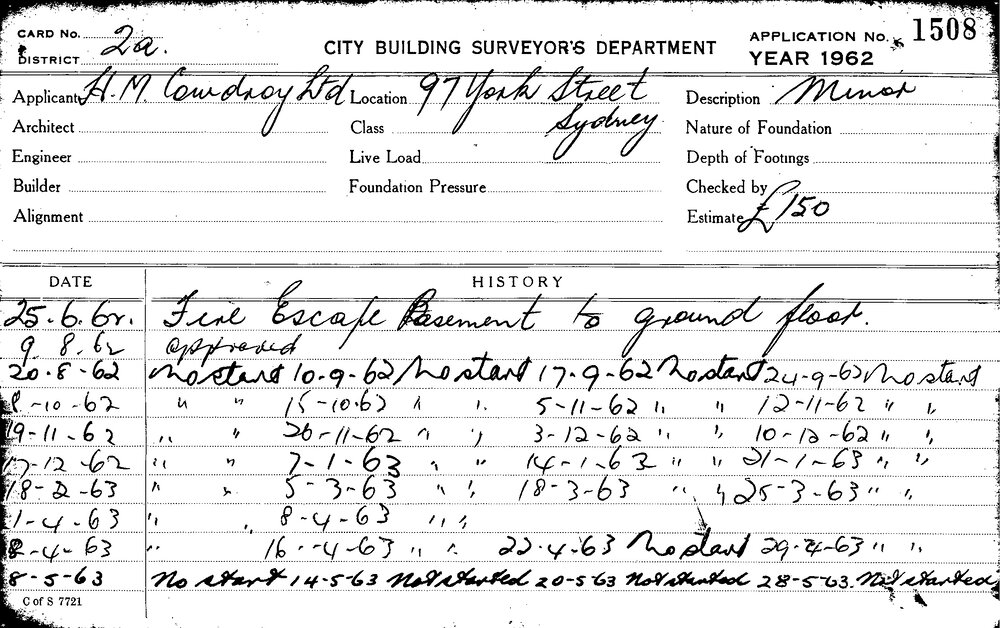 CARD No.
DISTRICT 2a.
CITY BUILDING SURVEYOR'S DEPARTMENT
APPLICATION No. 1508
YEAR 1962
Applicant H. M. Cowdroy Ltd Location 97 York Street Description Minor
Architect Class Sydney Nature of Foundation
Engineer Live Load Depth of Footings
Builder Foundation Pressure Checked by
Alignment Estimate £150
DATE HISTORY
25.6.62. Fire Escape Basement to ground floor.
9.8.62 approved
20-8-62 No start 10-9-62 No start 17-9-62 No start 24-9-62 No start
8-10-62 " " 15-10-62 " " 5-11-62 " " 12-11-62 " "
19-11-62 " " 26-11-62 " " 3-12-62 " " 10-12-62 " "
17-12-62 " " 7-1-63 " " 14-1-63 " " 21-1-63 " "
18-2-63 " " 5-3-63 " " 18-3-63 " " 25-3-63 " "
1-4-63 " " 8-4-63 " "
-4-63 " 16-4-63 " " 22.4.63 No start 29-4-63 " "
8-5-63 No start 14-5-63 Not started 20-5-63 Not started 28-5-63. Not started
C of S 7721